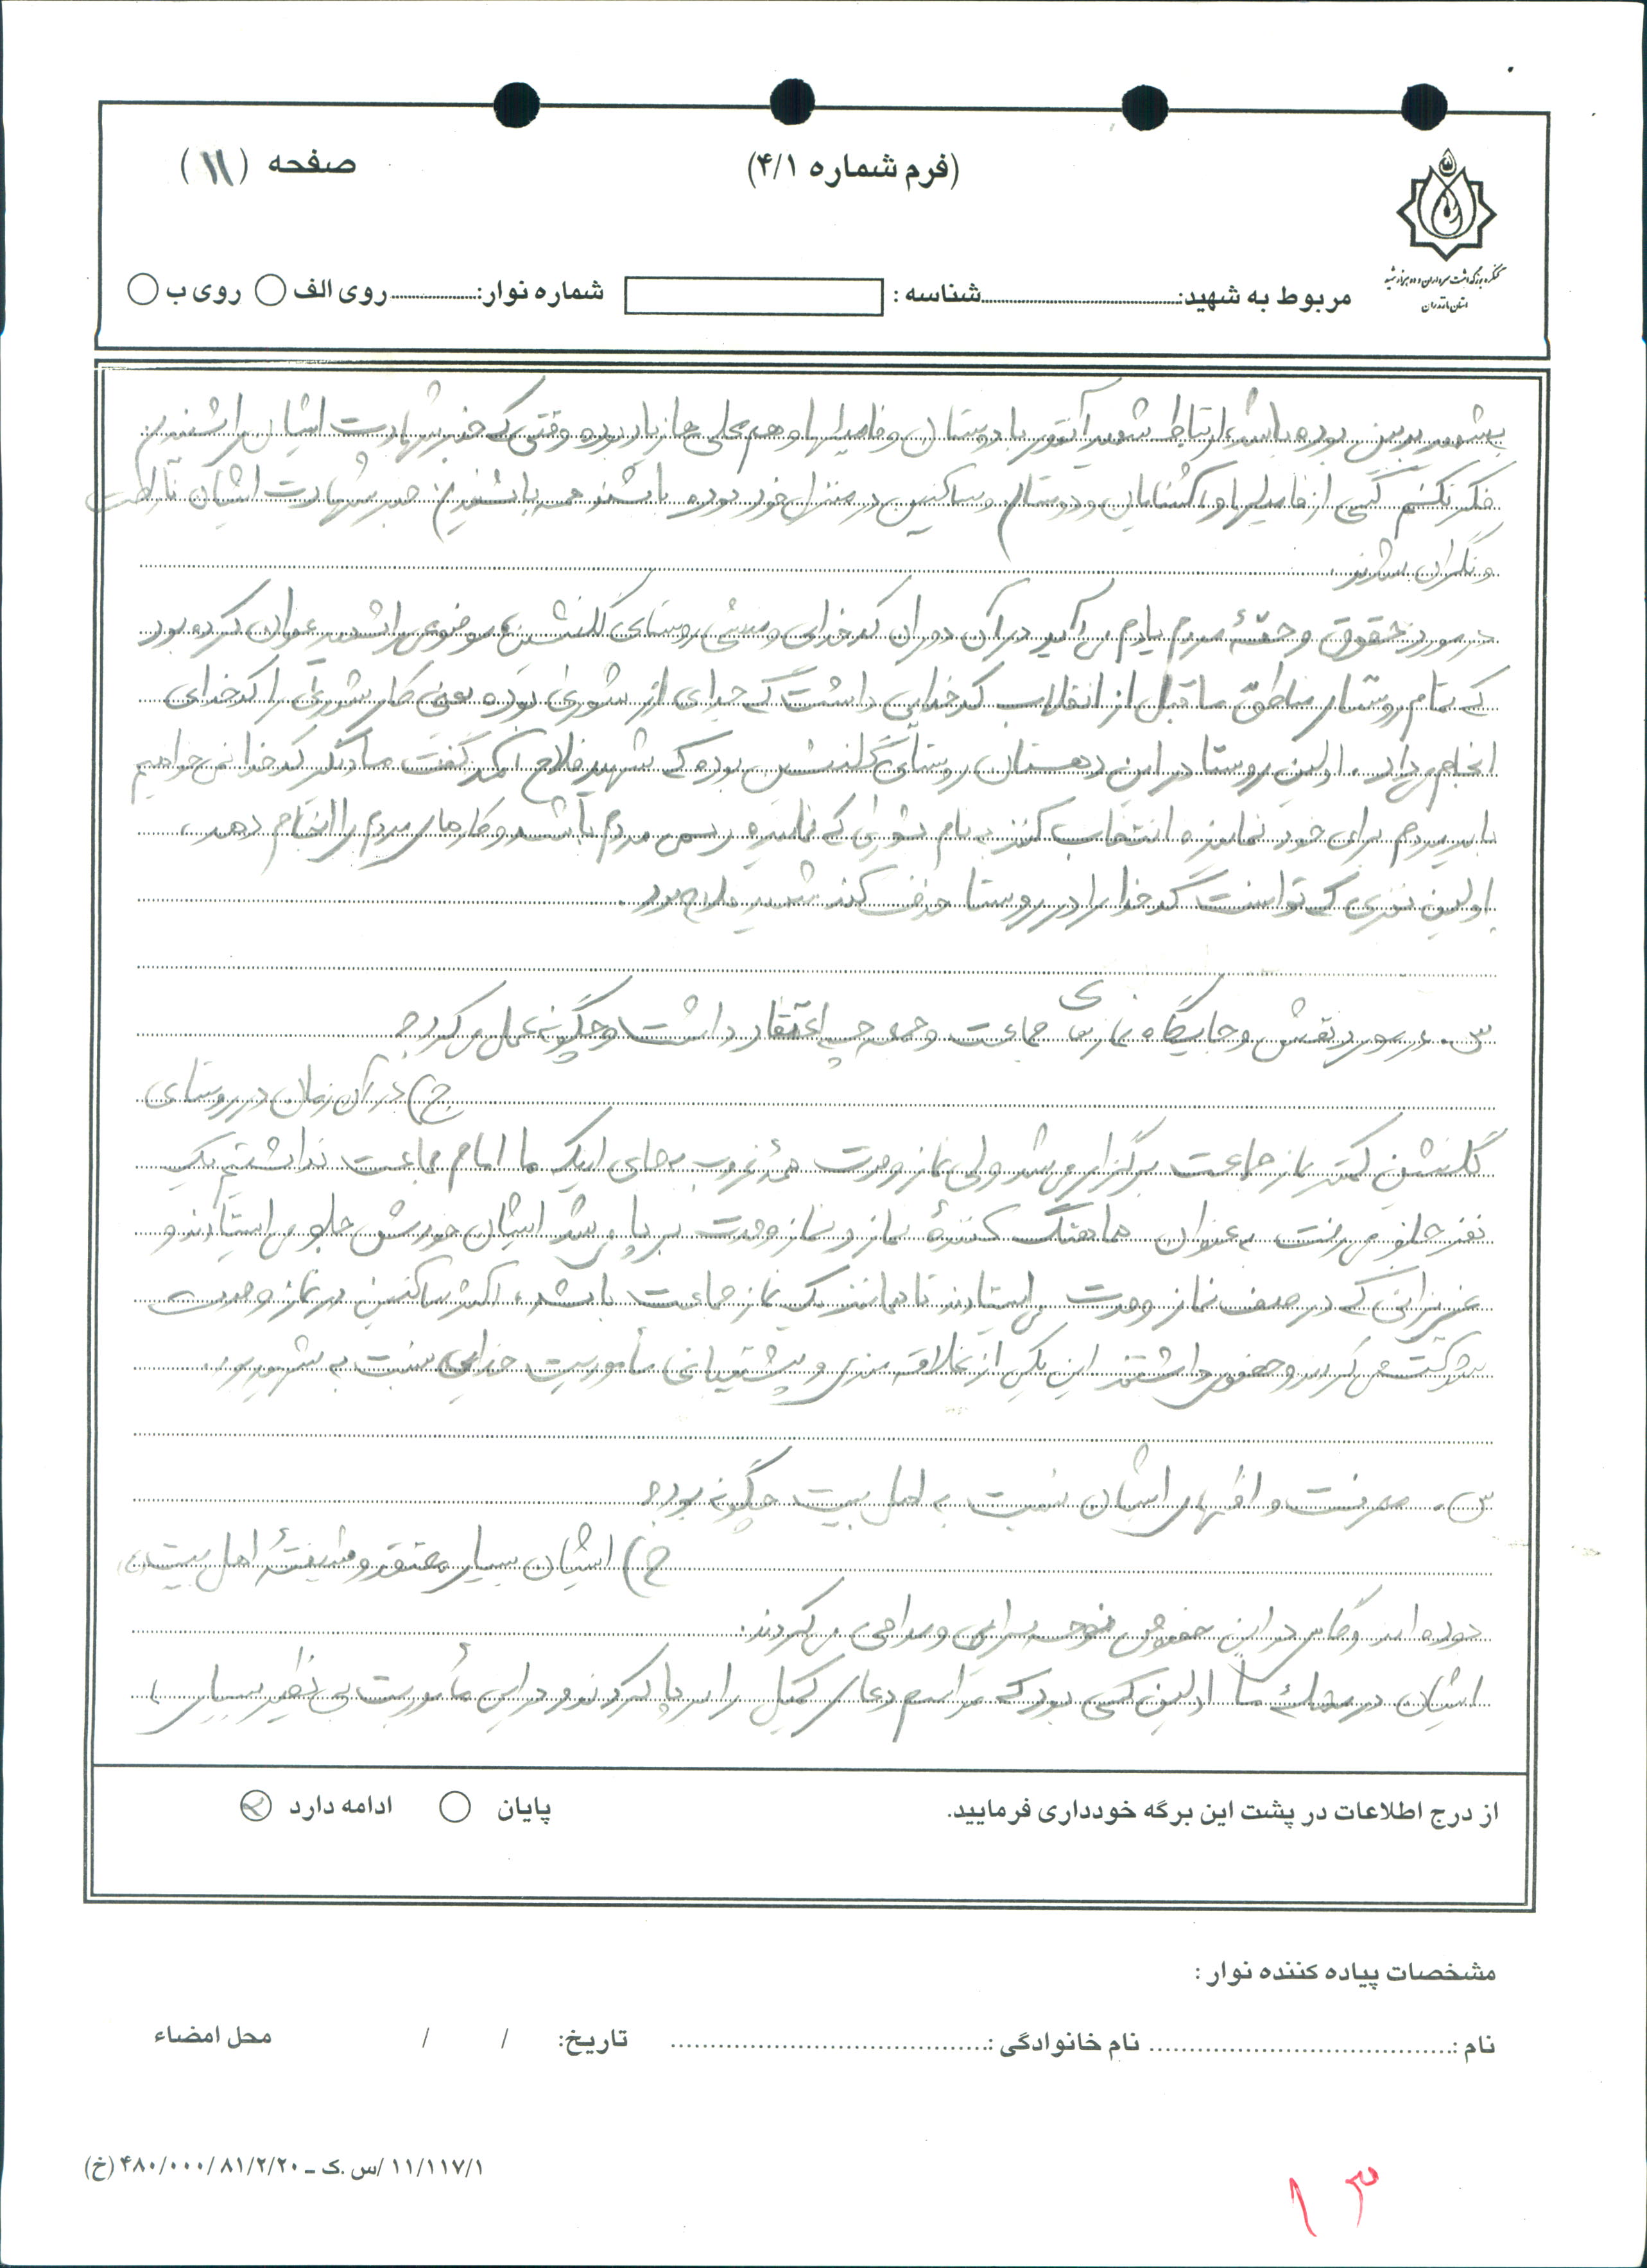 صفحه (۱۱)
(فرم شماره ۴/۱)
کنگره بزرگداشت سرداران و ده هزار شهید
استان مازندران
مربوط به شهید:........ شناسه : شماره نوار:........ روی الف روی ب
بوده باشد، ارتباط شهید آنقدر با دوستان و فامیلها و هم محلی ها زیاد بوده وقتی که خبر شهادت ایشان را شنیدن
فکر نکنم کسی از فامیلها و آشنایان و دوستان و ساکنین در منزل خود بوده باشند همه با شنیدن خبر شهادت ایشان ناراحت
و نگران شدند.
در مورد حقوق و حقۀ مردم یادم می آید در آن دوران کدخدای و منشی روستای گلنشین موضوعی را شهید عنوان کرده بود
که تمام روستای مناطق ما قبل از انقلاب کدخدایی داشت که جدای از شورای بوده یعنی کار شورای را کدخدای
انجام می داد. اولین روستا در این دهستان روستای گلنشین بوده که شهید فلاح آمد گفت ما دیگر کدخدا نمی خواهیم
باید مردم برای خود نماینده انتخاب کنند به نام شورای که نماینده رسمی مردم باشد و کارهای مردم را انجام دهد،
اولین نفری که توانست کدخدا را در روستا حذف کند شهید فلاح بود.
س. در مورد نقش و جایگاه نمازهای جماعت و جمعه چه اعتقاد داشت و چگونه عمل می کرد؟
ج) در آن زمان در روستای
گلنشین کمتر نماز جماعت برگزار می شد ولی نماز وحدت همۀ غروب به جای اینکه ما امام جماعت نداشتیم یک
نفر جلو می رفت به عنوان هماهنگ کنندۀ نماز و نماز وحدت برپا می شد ایشان خودش جلو می ایستادند و
عزیزانی که در صف نماز وحدت می ایستادند تا همانند یک نماز جماعت باشد، اکثر ساکنین در نماز وحدت
شرکت می کردند و حضور داشتند این یکی از علاقه مندی و پشتیبانی مأموریت خدایی نسبت به شهید بود.
س. معرفت و اظهار ایشان نسبت به اهل بیت چگونه بود؟
ج) ایشان بسیار معتقد و شیفتۀ اهل بیت (ع)
بوده اند و گاهی در این خصوص نوحه سرایی و مداحی می کردند.
ایشان در محله ما اولین کسی بود که مراسم دعای کمیل را برپا کردند و در این مأموریت بی نظیر بسیار
از درج اطلاعات در پشت این برگه خودداری فرمایید. پایان ادامه دارد
مشخصات پیاده کننده نوار :
نام :........ نام خانوادگی :........ تاریخ: / / محل امضاء
۱۱/۱۱۷/۱ /س.ک ـ ۴۸۰/۰۰۰/۸۱/۲/۲۰ (خ)
۱۳